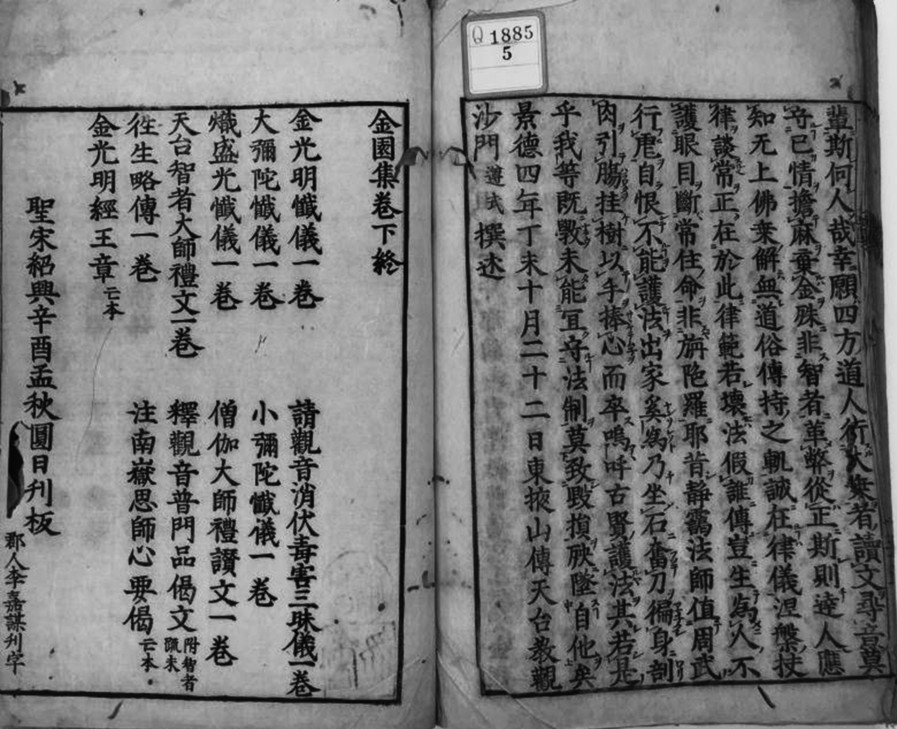 Q 1885
5
輩斯何人哉幸願四方道人行大乗者讀文尋㫖莫
守己情擔麻棄金殊非智者革弊從正斯則達人應
知无上佛乗解無道俗傳持之軌誠在律儀涅槃扶
律談常正在於此律範若壞法假誰傳豈生為人不
護眼目斷常住命非旃陁羅耶昔靜靄法師值周武
行虐自恨不能護法出家奚為乃坐石奮刀徧身割
肉引膓挂樹以手捧心而卒嗚呼古賢護法其若是
乎我等既斅未能宜守法制莫致毀損殃墜自他矣
景德四年丁未十月二十二日東掖山傳天台教觀
沙門遵式撰述
金園集卷下終
金光明懴儀一卷 請觀音消伏毒害三昧儀一卷
大彌陀懴儀一卷 小彌陀懴儀一卷
熾盛光懴儀一卷 僧伽大師禮讃文一卷
天台智者大師禮文一卷 釋觀音普門品偈文附智者䟽末
徃生略傳一卷 注南嶽思師心要偈亡本
金光明經王章亡本
聖宋紹興辛酉孟秋圓日刋板
郡人李嘉謀刋字